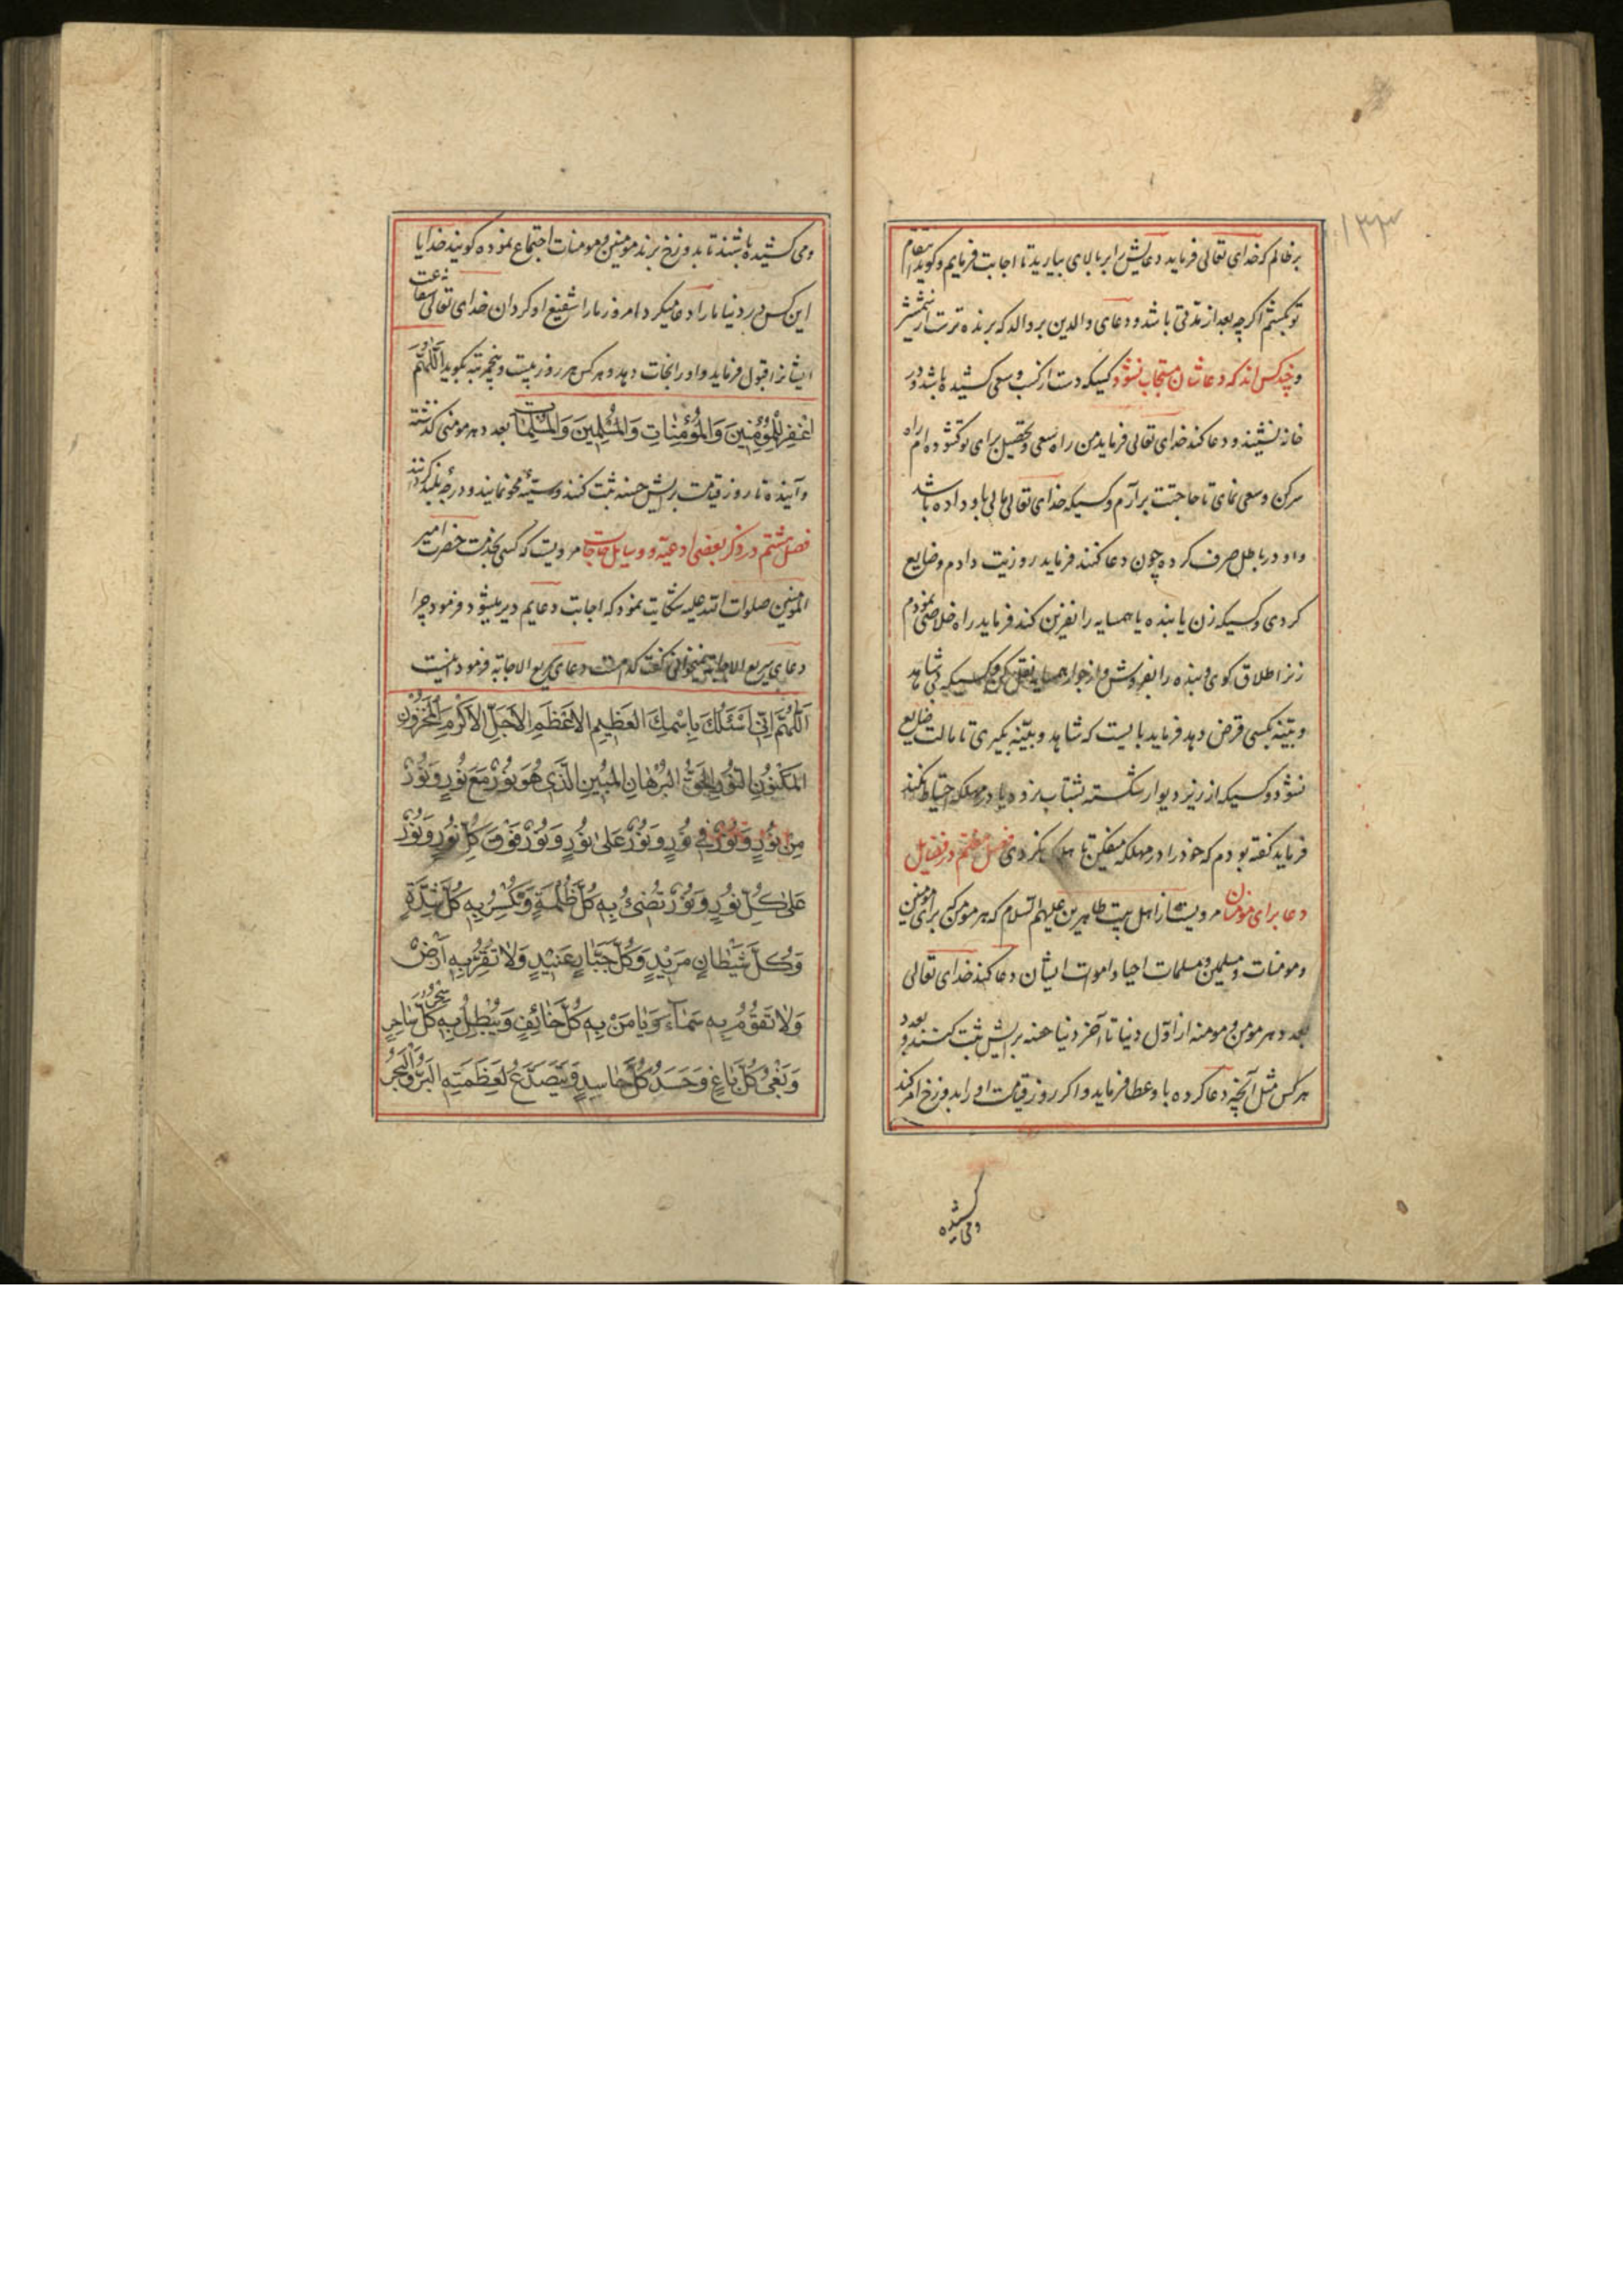 ۱۳۳
بر ظالم که خدای تعالی فرماید دعایش را بر بالای بیارید تا اجابت فرمایم و کوید انتقام
تو بکشم اکرچه بعد از مدتی باشد و دعای والدین بر والد که برنده ترست از شمشیر
و چند کس اند که دعاشان مستجاب نشود کسیکه دست از کسب و سعی کشیده باشد و در
خانه نشیند و دعا کند خدای تعالی فرماید من راه سعی و تحصیل برای تو کشوده ام راه
سرکن و سعی نمای تا حاجتت برآرم و کسیکه خدای تعالی مالی باو داده باشد
و او در باطل صرف کرده چون دعا کنند فرماید روزیت دادم و ضایع
کردی و کسیکه زن یا بنده یا همسایه را نفرین کند فرماید راه خلاصی نمودم
زنرا طلاق کوی و بنده را بفروش و از جوار همسایه نقل کن و کسیکه بی شاهد
و بینه بکسی قرض دهد فرماید بایست که شاهد و بینه بکیری تا مالت ضایع
نشود و کسیکه از زیر دیوار شکسته بشتاب نرود یا در مهلکه احتیاط نکند
فرماید کفته بودم که خود را در مهلکه میفکن تا هلاک نکردی فصل هفتم در فضایل
دعا برای مومنان مرویست از اهل بیت طاهرین علیهم السلام که هر مومن که برای مومنین
و مومنات و مسلمین و مسلمات احیا و اموات ایشان دعا کند خدای تعالی
بعدد هر مومن و مومنه از اول دنیا تا آخر دنیا حسنه برایش ثبت کنند و بعدد
هر کس مثل آنچه دعا کرده باو عطا فرماید و اکر روز قیامت او را بدوزخ امر کند
ومی کشیده
ومی کشیده باشند تا بدوزخ برند مومنین و مومنات اجتماع نموده کویند خدایا
این کس در دنیا ما را دعا میکرد امروز ما را شفیع او کردان خدای تعالی شفاعت
ایشانرا قبول فرماید و او را نجات دهد و هر کس هر روز بیست و پنج مرتبه بکوید اَللّٰهُمَّ
اغْفِرْ لِلْمُؤْمِنینَ وَالْمُؤْمِنٰاتِ وَالْمُسْلِمینَ وَالْمُسْلِمٰاتِ بعدد هر مومنی کذشته
و آینده تا روز قیامت برایش حسنه ثبت کنند و سیئه محو نمایند و درجه بلند کردانند
فصل هشتم در ذکر بعضی ادعیه و وسایل حاجات مرویست که کسی بخدمت حضرت امیر
المومنین صلوات الله علیه شکایت نمود که اجابت دعایم دیر میشود فرمود چرا
دعای سریع الاجابة نمیخوانی کفت کدامست دعای سریع الاجابه فرمود اینست
اَللّٰهُمَّ اِنّی اَسْئَلُكَ بِاسْمِكَ العَظیمِ الاَعْظَمِ الاَجَلِّ الاَكْرَمِ الْمَخْزُونِ
المَكْنُونِ النُّورِ الحَقِّ البُرْهٰانِ المُبینِ الَّذی هُوَ نُورٌ مَعَ نُورٍ وَنُورٌ
مِنْ نُورٍ وَنُورٌ فی نُورٍ وَنُورٌ عَلیٰ نُورٍ وَنُورٌ فَوْقَ كُلِّ نُورٍ وَنُورٌ
عَلیٰ كُلِّ نُورٍ وَنُورٌ تُضیٓءُ بِهِ كُلَّ ظُلْمَةٍ وَتَكْسِرُ بِهِ كُلَّ شِدَّةٍ
وَكُلَّ شَیْطٰانٍ مَریدٍ وَكُلَّ جَبّٰارٍ عَنیدٍ وَلٰا تَقِرُّ بِهِ اَرْضٌ
وَلٰا تَقُومُ بِهِ سَمٰآءٌ وَیَاْمَنُ بِهِ كُلُّ خٰآئِفٍ وَیَبْطُلُ بِهِ سِحْرُ كُلِّ سٰاحِرٍ
وَبَغْیُ كُلِّ بٰاغٍ وَحَسَدُ كُلِّ حٰاسِدٍ وَیَتَصَدَّعُ لِعَظَمَتِهِ البَرُّ وَالْبَحْرُ